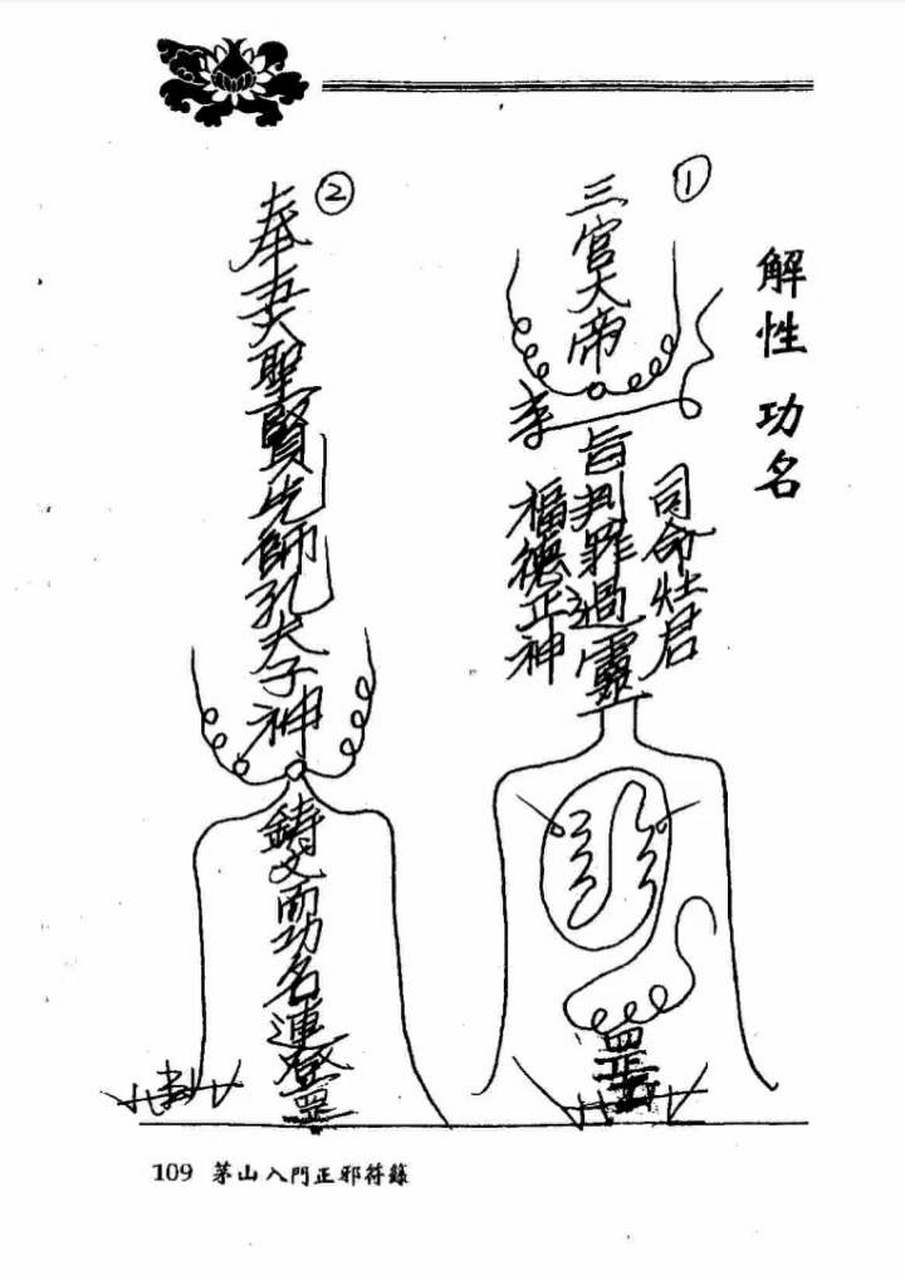 解性 功名
①
三官大帝
李
旨判罪過靈
司命灶君
福德正神
罡
②
奉
聖賢先師孔夫子神
鑄文而功名連登罡
109 茅山入門正邪符籙